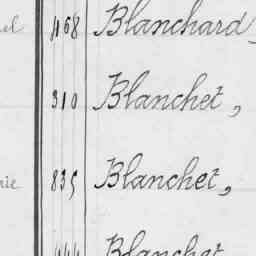 el 468 Blanchard
310 Blanchet,
rie 835 Blanchet,
444 Blanchet